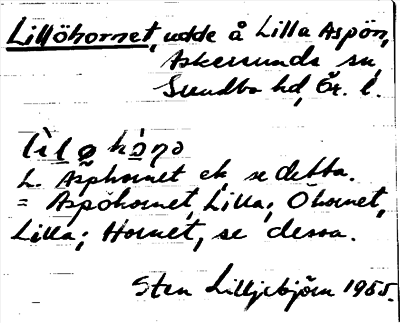 Lillöhornet, udde å Lilla Aspön,
Askersunds sn,
Sundbo hd, Ör. l.
L. Asphornet ek, se detta.
= Aspöhornet, Lilla; Öhornet,
Lilla; Hornet, se dessa.
Sten Lilljebjörn 1955.